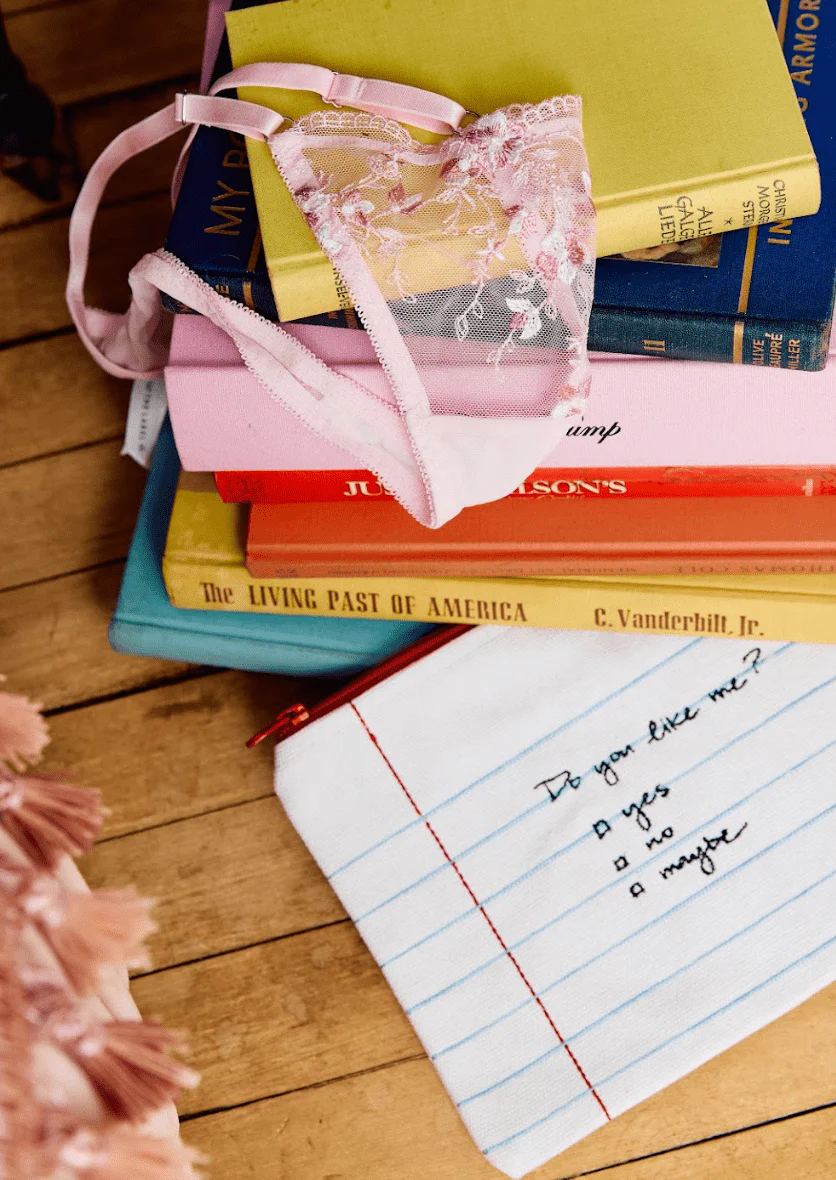 MY
ARMOR
CHRIST
MORG
STE
ALLE
GALGE
LIEDE
II
OLIVE
BEAUPRÉ
MILLER
ump
JU LSON'S
THOMAS COLE
The LIVING PAST OF AMERICA C. Vanderbilt, Jr.
Do you like me?
yes
no
maybe